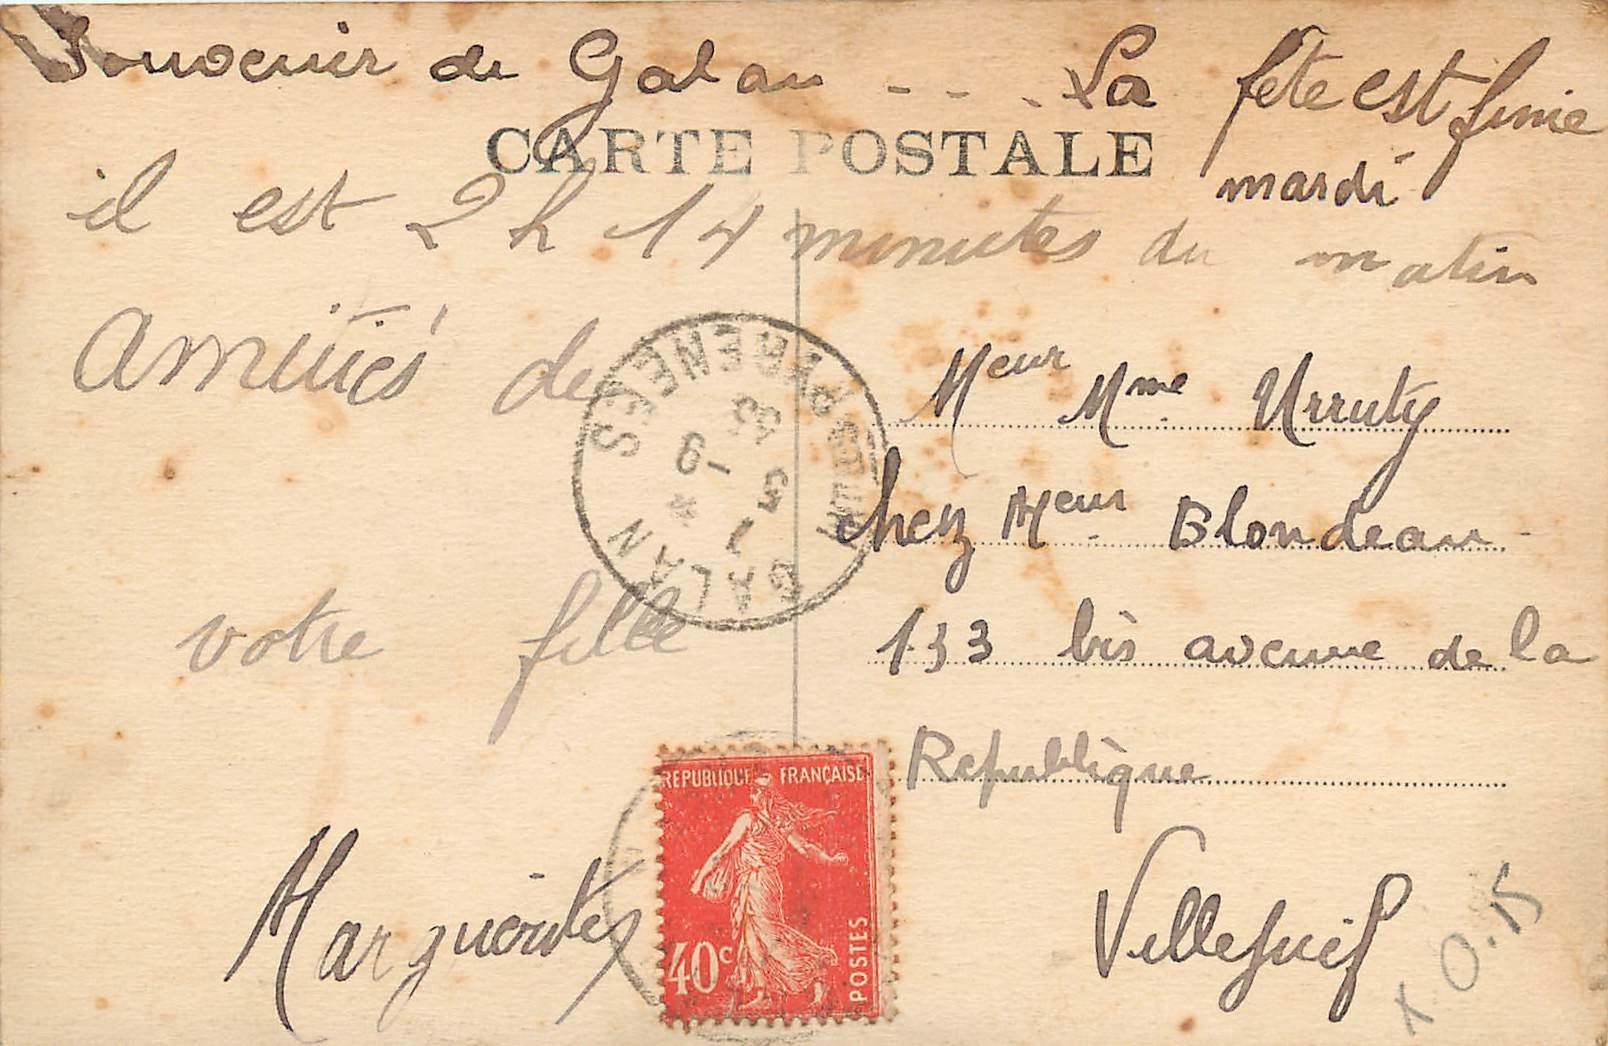 Souvenir de Galan - - . La fête est finie
CARTE POSTALE
mardi
il est 2 h 14 minutes du matin
Amitiés de
votre fille
Marguerite
HTES PYRENEES
GALAN
Meur Mme Urruty
chez Meur Blondeau
133 bis avenue de la
Republique
Villejuif
REPUBLIQUE FRANÇAISE
40c
POSTES
x 0.15